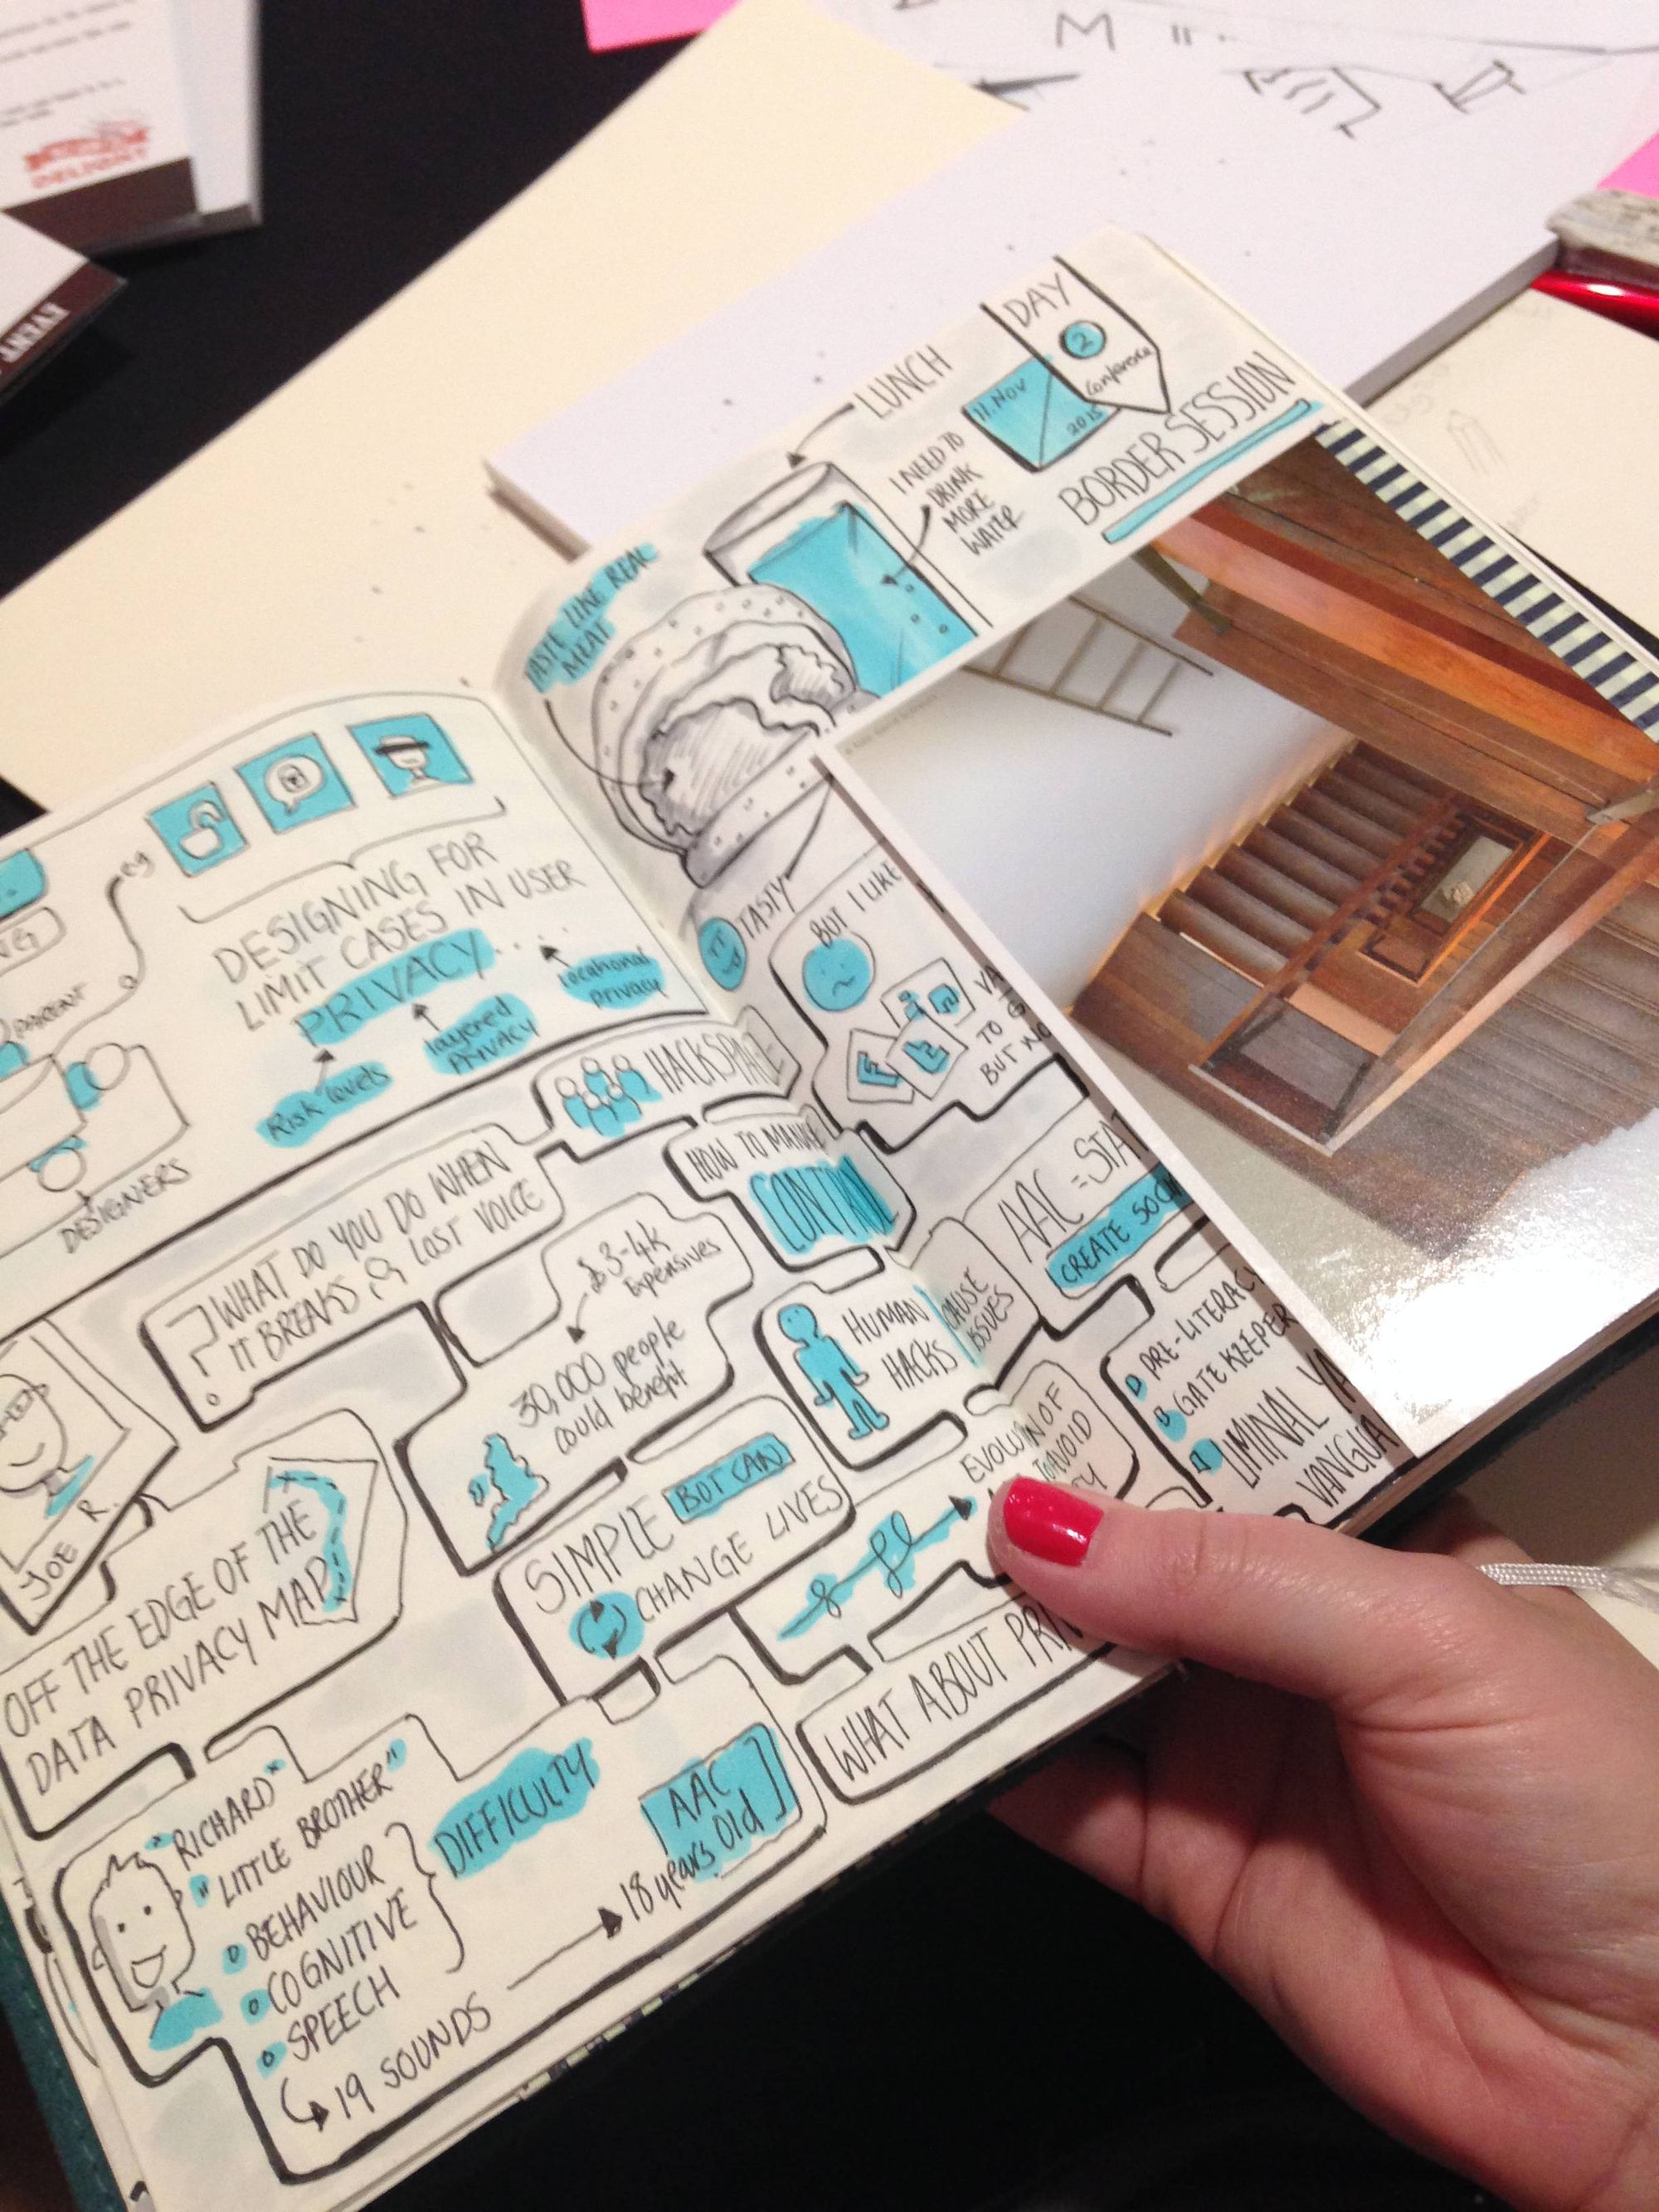 DELIGHT
EVENT
DESIGNING FOR
LIMIT CASES IN USER
PRIVACY....
Risk levels
layered
PRIVACY
locational
privacy
eg
PARENT
DESIGNERS
HACKSPACE
? WHAT DO YOU DO WHEN
IT BREAKS & LOST VOICE
$3-4K
Expensives
30,000 people
could benefit
JOE R.
OFF THE EDGE OF THE
DATA PRIVACY MAP
SIMPLE BOT CAN
CHANGE LIVES
"RICHARD"
"LITTLE BROTHER"
BEHAVIOUR
COGNITIVE
SPEECH
DIFFICULTY
19 SOUNDS
18 years Old
AAC
DAY
2
Conference
11. Nov
2015
BORDER SESSION
LUNCH
I NEED TO
DRINK
MORE
WATER
TASTE LIKE REAL
MEAT
TASTY
BUT I LIKE
TO
BUT NO
HOW TO
CONTROL
HUMAN
HACKS
CAUSE
ISSUES
AAC = STA
CREATE SOCI
PRE-LITERACY
GATE KEEPER
LIMINAL
VANGUA
EVOLUTION OF
TO AVOID
WHAT ABOUT PRI